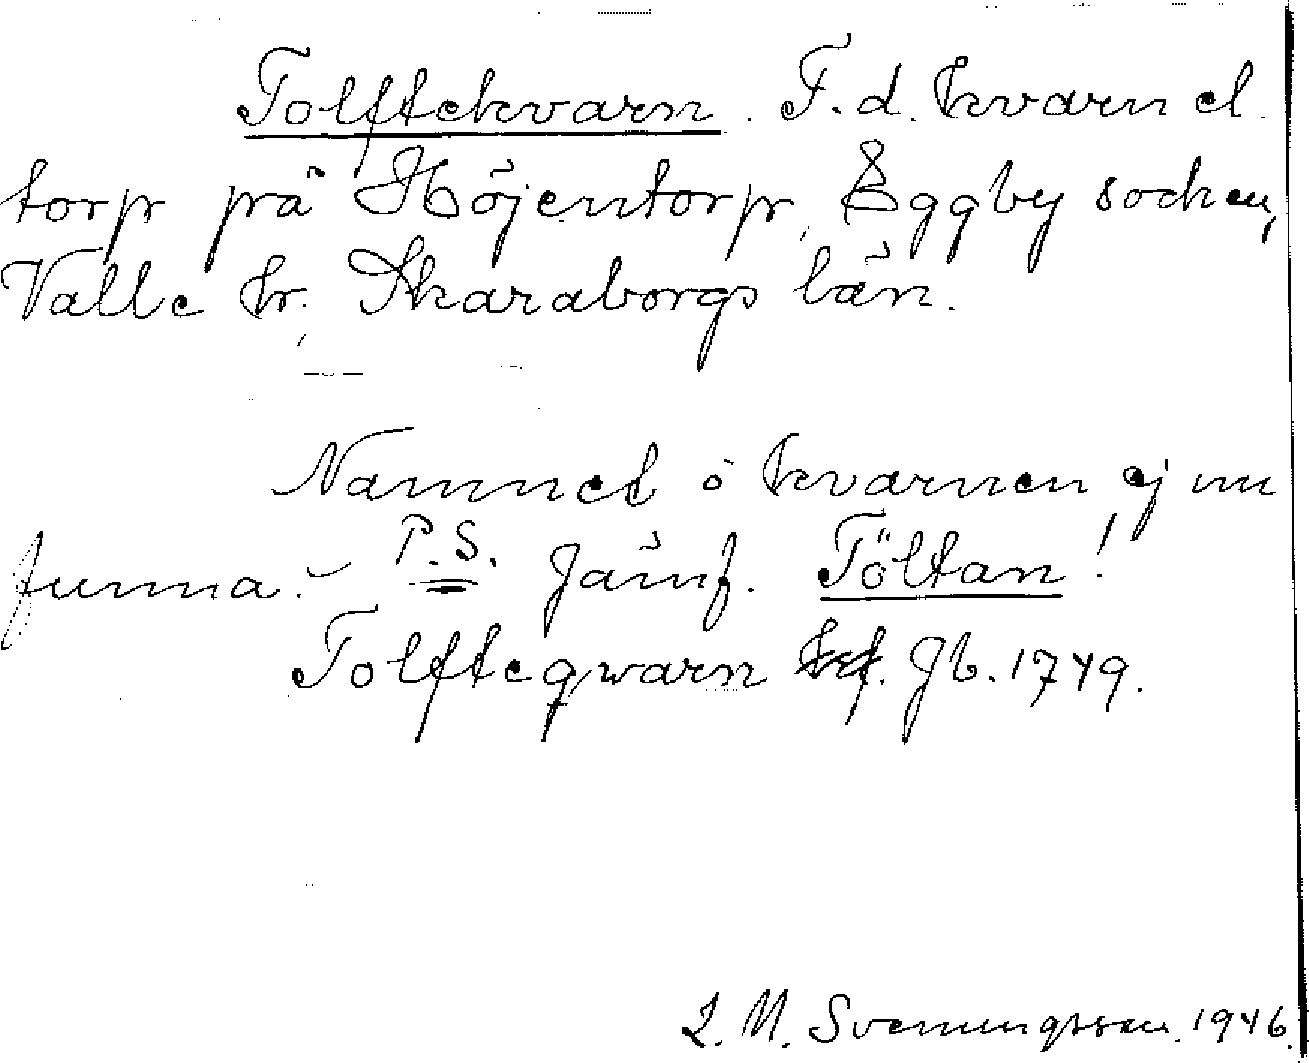 Tolftekvarn. F.d. kvarn el.
torp på Höjentorp, Eggby socken,
Valle hr. Skaraborgs län.
Namnet o kvarnen ej nu
funna. P.S. Jämf. Töltan!
Tolfteqwarn Jb. 1749.
L. M. Svenungsson. 1946.